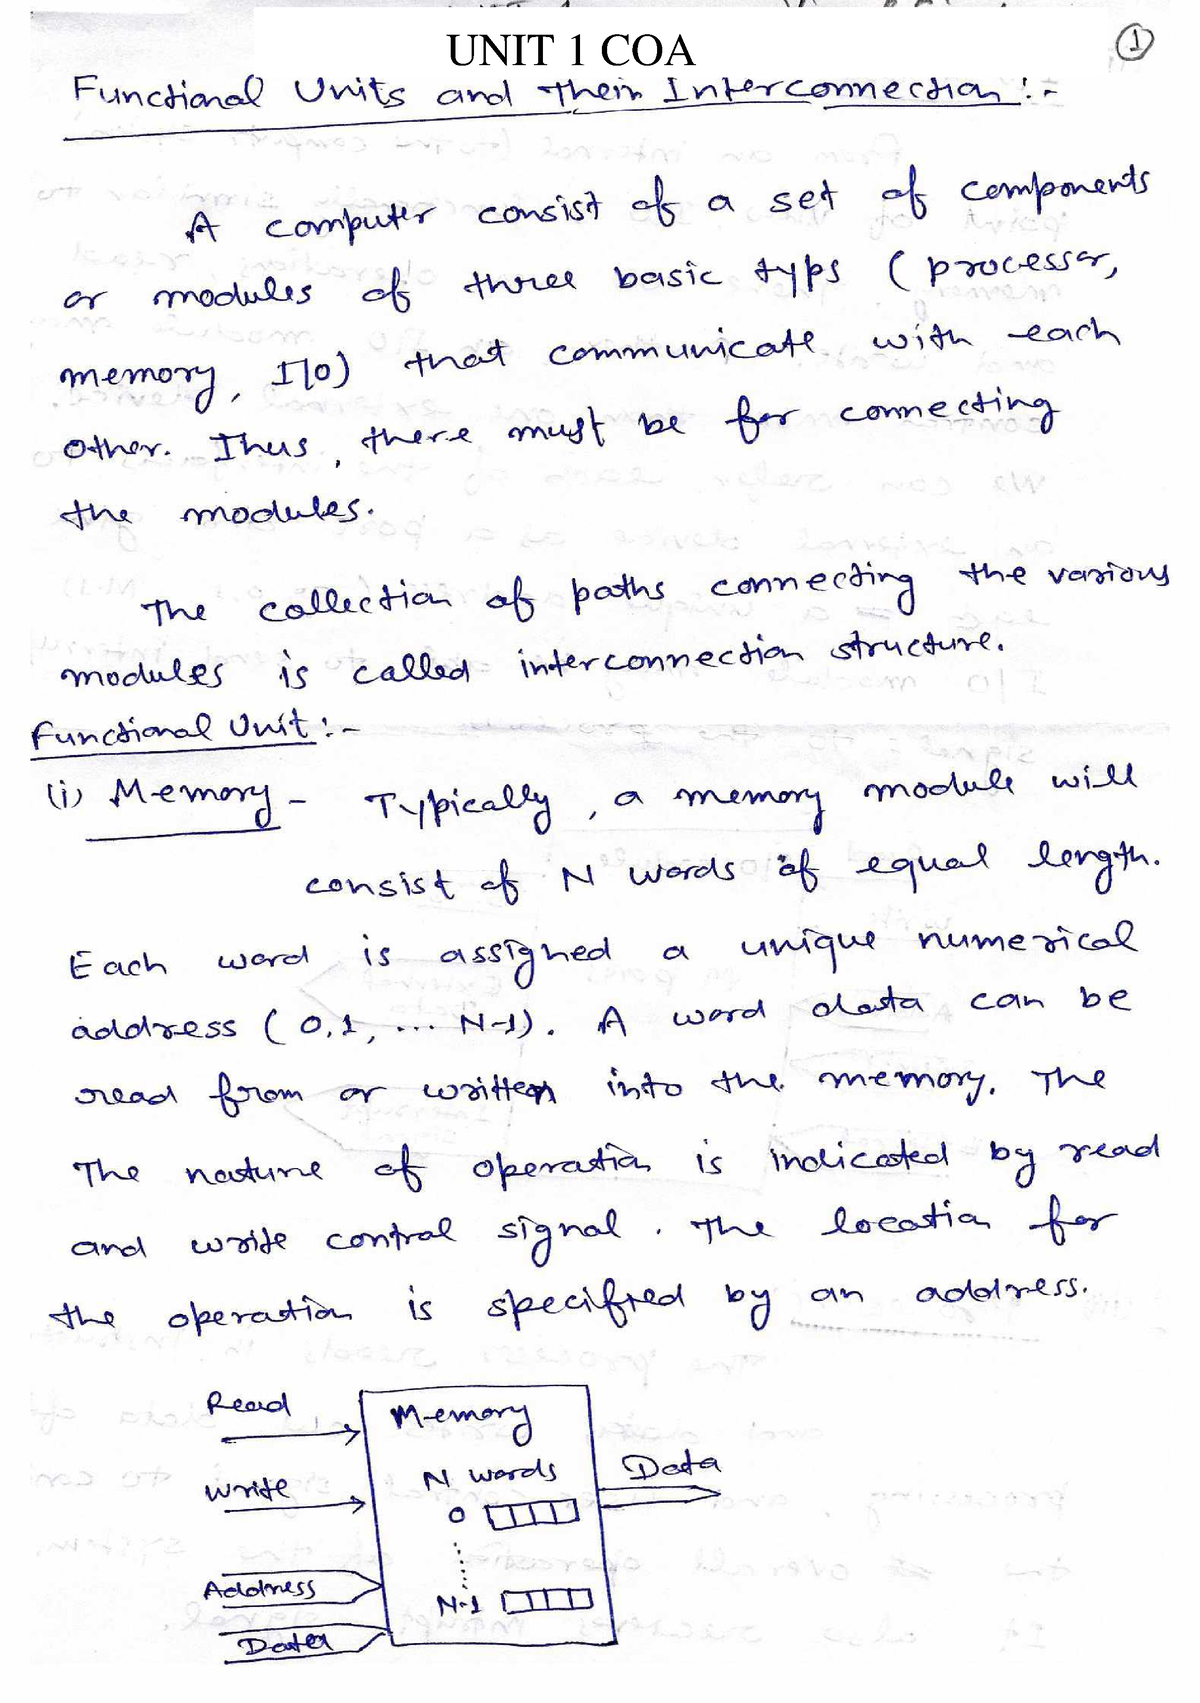 UNIT 1 COA
1
Functional Units and Their Interconnection :-
A computer consist of a set of components
or modules of three basic typs (processor,
memory, I/O) that communicate with each
other. Thus, there must be for connecting
the modules.
The collection of paths connecting the various
modules is called interconnection structure.
Functional Unit :-
(i) Memory - Typically, a memory module will
consist of N words of equal length.
Each word is assigned a unique numerical
address (0,1, ... N-1). A word data can be
read from or written into the memory. The
The nature of operation is indicated by read
and write control signal. The location for
the operation is specified by an address.
Read
Memory
N words
Data
Write
0
Address
N-1
Data